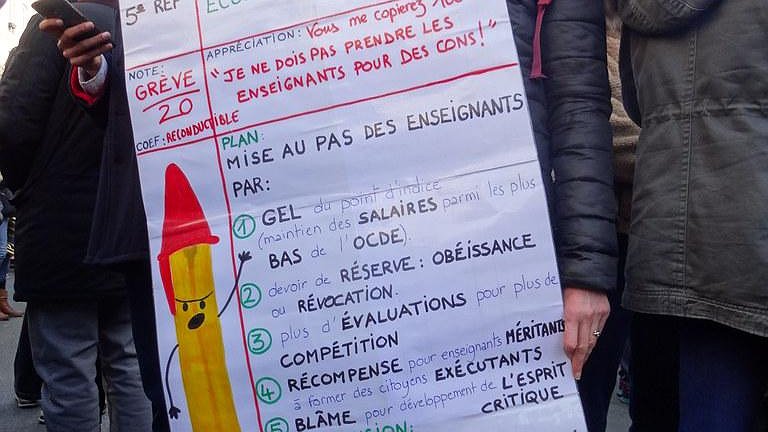 5e REP
APPRÉCIATION: Vous me copierez 100
"JE NE DOIS PAS PRENDRE LES
ENSEIGNANTS POUR DES CONS!"
NOTE:
GRÈVE
20
COEF: RECONDUCTIBLE
PLAN:
MISE AU PAS DES ENSEIGNANTS
PAR:
1 GEL du point d'indice
(maintien des SALAIRES parmi les plus
BAS de l'OCDE).
2 devoir de RÉSERVE: OBÉISSANCE
ou RÉVOCATION.
3 plus d'ÉVALUATIONS pour plus de
COMPÉTITION
4 RÉCOMPENSE pour enseignants MÉRITANTS
à former des citoyens EXÉCUTANTS
5 BLÂME pour développement de L'ESPRIT
CRITIQUE